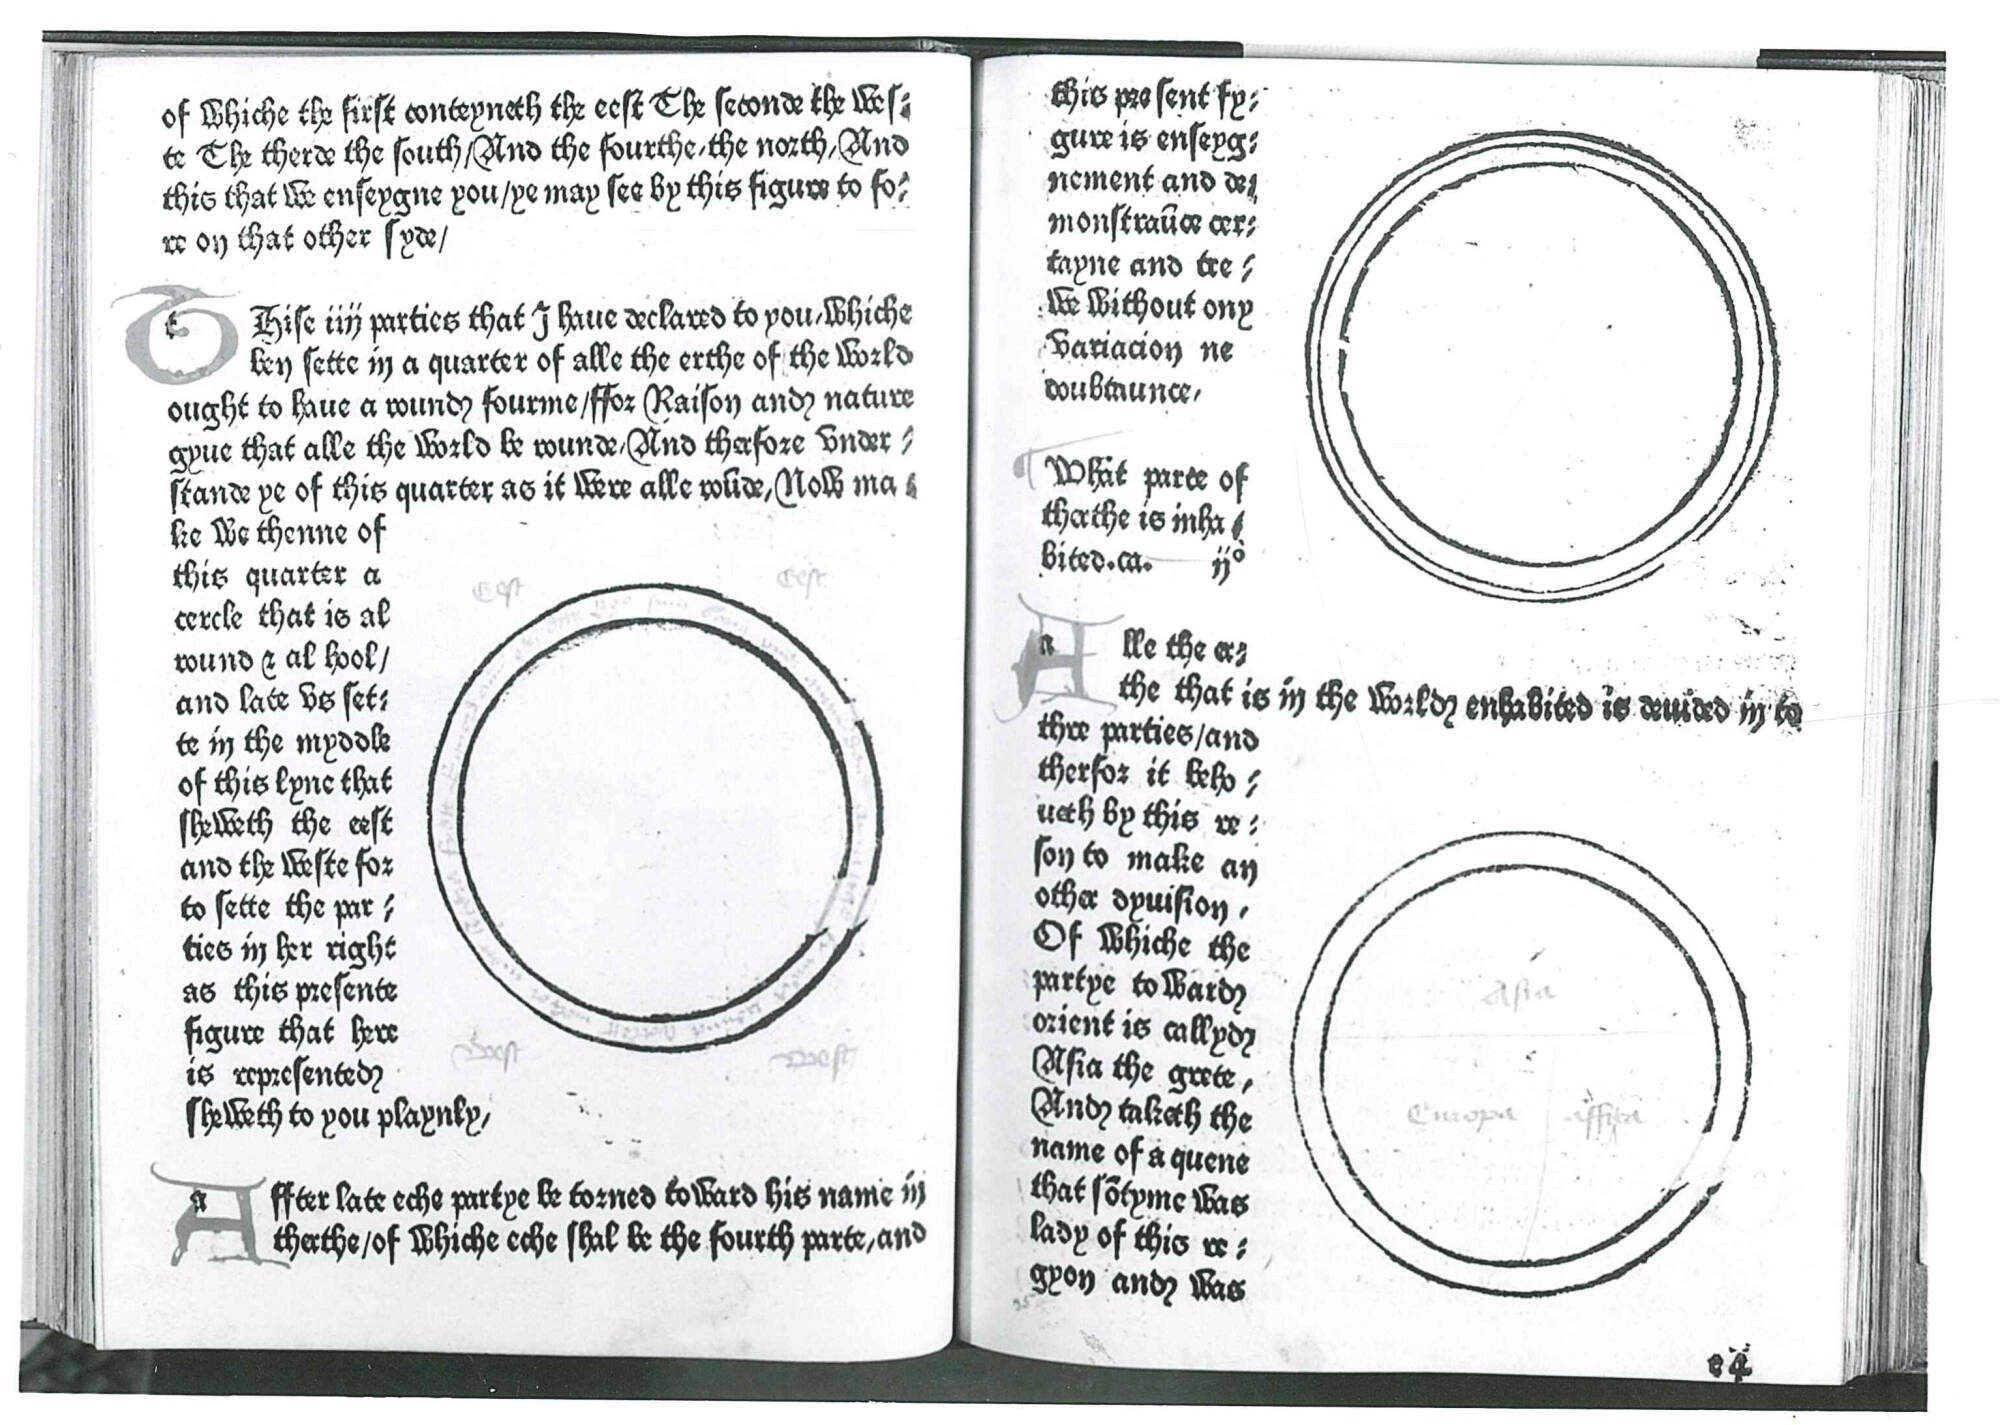 of whiche the first conteyneth the eest The seconde the wes⸗
te The therde the south/And the fourthe/the north/And
this that we enseygne you/ye may see by this figure to fo⸗
re on that other syde/
tHise iiij parties that J haue declared to you/whiche
ben sette in a quarter of alle the erthe of the world
ought to haue a round fourme/ffor Raison and nature
gyue that alle the world be rounde/And therfore vnder⸗
stande ye of this quarter as it were alle roūde/Now ma⸗
ke we thenne of
this quarter a
cercle that is al
round & al hool/
and late vs set⸗
te in the myddle
of this lyne that
sheweth the eest
and the weste for
to sette the par⸗
ties in her right
as this presente
figure that here
is represented
sheweth to you playnly/
Eest Eest
West West
affter late eche partye be torned toward his name in
therthe/of whiche eche shal be the fourth parte/and
this present fy⸗
gure is enseyg⸗
nement and de⸗
monstraūce cer⸗
tayne and tre⸗
we without ony
variacion ne
doubtaunce/
What parte of
therthe is inha⸗
bited.ca. ijº
alle the er⸗
the that is in the world enhabited is deuided in to
thre parties/and
therfor it beho⸗
ueth by this re⸗
son to make an
other dyuision/
Of whiche the
partye toward
orient is callyd
Asia the grete/
And taketh the
name of a quene
that sōtyme was
lady of this re⸗
gyon and was
Asia
Europa affrica
e 4